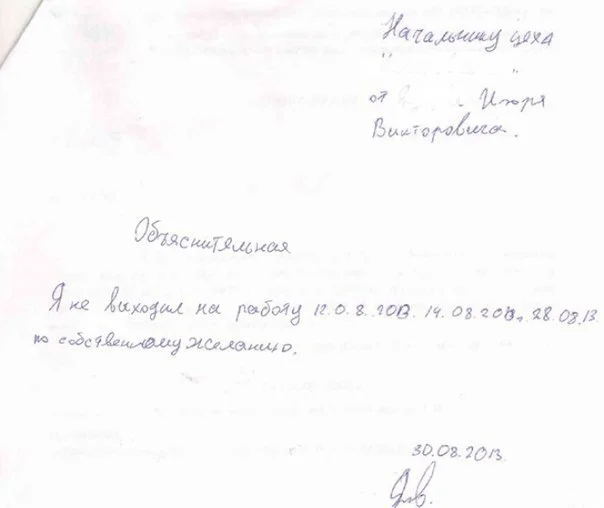 Начальнику цеха
" "
от Игоря
Викторовича.
Объяснительная
Я не выходил на работу 12.0.8.2013. 14.08.2013. 28.08.13.
по собственному желанию.
30.08.2013.